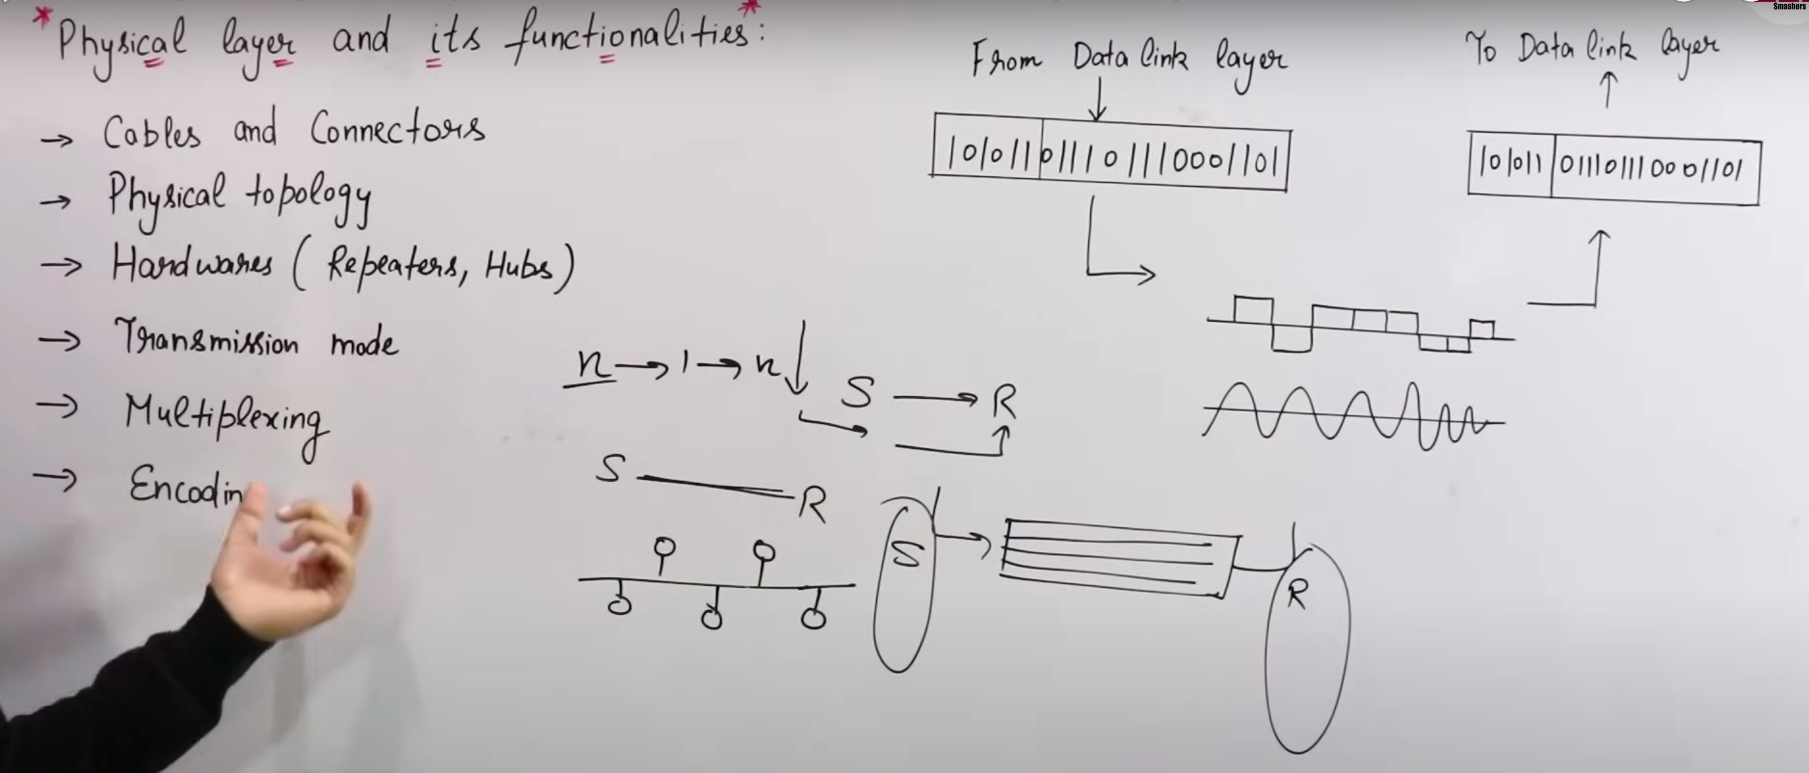 *Physical layer and its functionalities*:
→ Cables and Connectors
→ Physical topology
→ Hardwares ( Repeaters, Hubs )
→ Transmission mode
→ Multiplexing
→ Encodin
n → 1 → n
S → R
S R
S
R
From Data link layer
101011 011101110001101
To Data link layer
101011 011101110001101
Smashers